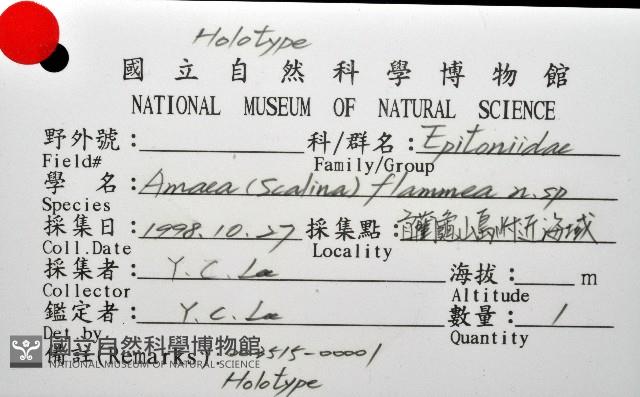 Holotype
國立自然科學博物館
NATIONAL MUSEUM OF NATURAL SCIENCE
野外號: 科/群名: Epitoniidae
Field# Family/Group
學 名: Amaea (Scalina) flammea n.sp
Species
採集日: 1998.10.27 採集點: 龜山島附近海域
Coll.Date Locality
採集者: Y.C. Lee 海拔: m
Collector Altitude
鑑定者: Y.C. Lee 數量: 1
Det.by Quantity
備註(Remarks) 3515-00001
國立自然科學博物館
NATIONAL MUSEUM OF NATURAL SCIENCE
Holotype